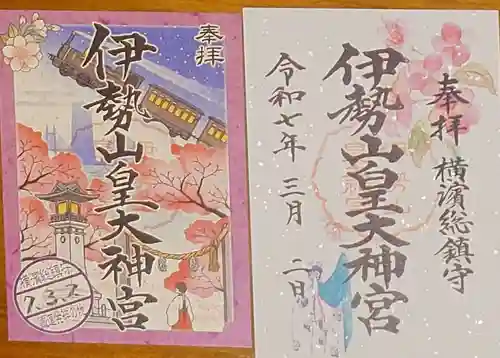 奉拝
伊勢山皇大神宮
7.3.2
奉拝
横濱総鎮守
伊勢山皇大神宮
令和七年三月二日